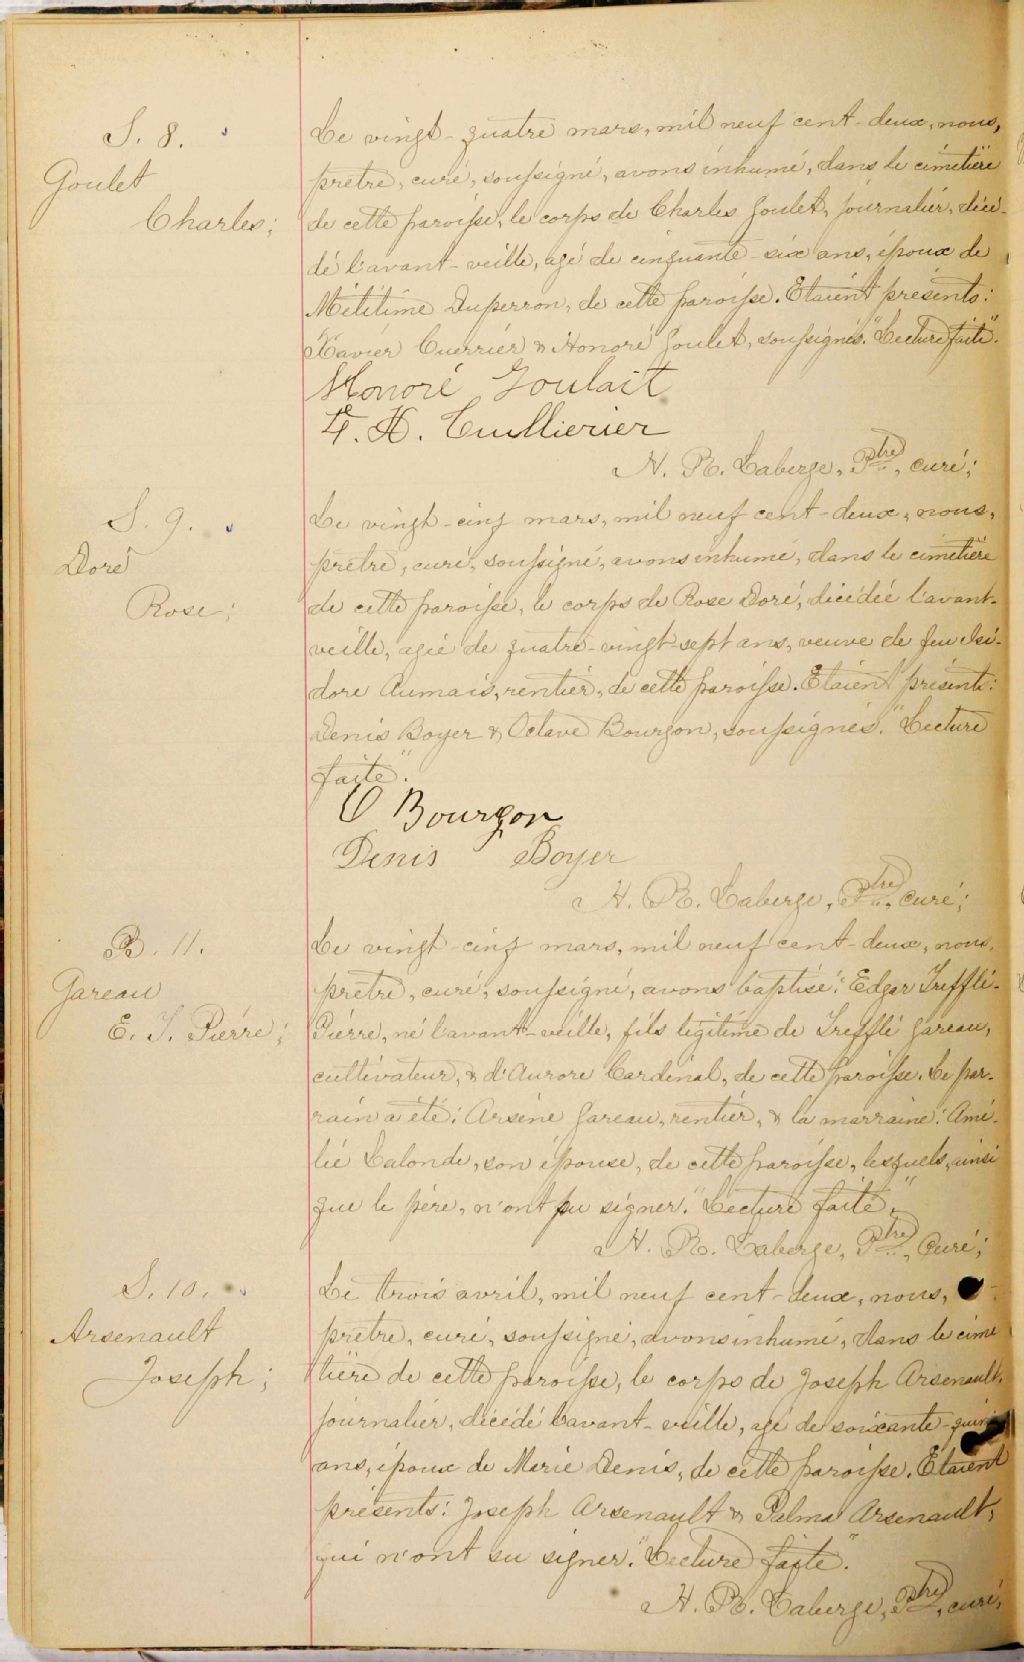 S. 8.
Goulet
Charles;
Le vingt-quatre mars, mil neuf cent-deux, nous,
prêtre, curé, soussigné, avons inhumé, dans le cimetière
de cette paroisse, le corps de Charles Goulet, journalier, décé-
dé l'avant-veille, agé de cinquante-six ans, époux de
Duperron, de cette paroisse. Etaient présents:
Xavier Cuerrier & Honoré Goulet, soussignés. "Lecture faite".
Honoré Goulait
F. X. Cuillierier
H. R. Laberge, Ptre, curé;
S. 9.
Doré
Rose;
Le vingt-cinq mars, mil neuf cent-deux, nous,
prêtre, curé, soussigné, avons inhumé, dans le cimetière
de cette paroisse, le corps de Rose Doré, décédée l'avant-
veille, agée de quatre-vingt-sept ans, veuve de feu Isi-
dore Aumais, rentier, de cette paroisse. Etaient présents:
Denis Boyer & Octave Bourgon, soussignés. "Lecture
faite".
O Bourgon
Denis Boyer
H. R. Laberge, Ptre, curé;
B. 11.
Gareau
E. T. Pierre;
Le vingt-cinq mars, mil neuf cent-deux, nous,
prêtre, curé, soussigné, avons baptisé: Edgar Trefflé-
Pierre, né l'avant-veille, fils légitime de Trefflé Gareau,
cultivateur, & d'Aurore Cardinal, de cette paroisse. Le par-
rain a été: Arsène Gareau, rentier, & la marraine: Amé-
lie Lalonde, son épouse, de cette paroisse, lesquels, ainsi
que le père, n'ont pu signer. "Lecture faite".
H. R. Laberge, Ptre, Curé;
S. 10.
Arsenault
Joseph;
Le trois avril, mil neuf cent-deux, nous,
prêtre, curé, soussigné, avons inhumé, dans le cime
tière de cette paroisse, le corps de Joseph Arsenault,
journalier, décédé l'avant-veille, agé de soixante-
ans, époux de Marie Denis, de cette paroisse. Etaient
présents: Joseph Arsenault & Palma Arsenault,
qui n'ont su signer. "Lecture faite".
H. R. Laberge, Ptre, curé,